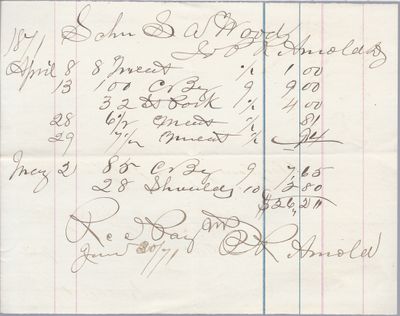 1871 John S A Wood
To P R Arnold Dr
April 8 8 Meat ½ 1 00
13 100 C By 9 9 00
32 lb Pork ½ 4 00
28 6½ Meat ½ 81
29 7½ Meat ½ 94
May 2 85 C By 9 7 65
28 Shoulds 10 2 80
$26,20
Rec'd Pay'm P R Arnold
June 20/71